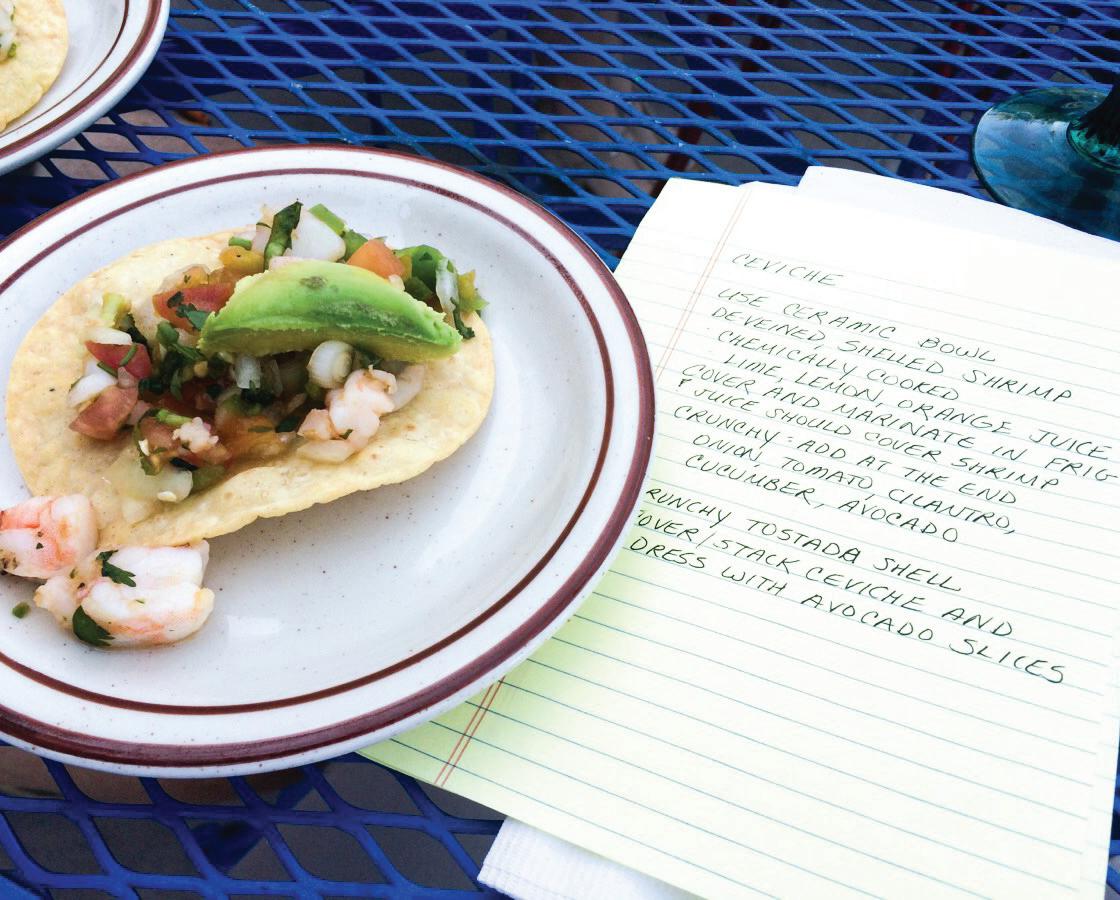 CEVICHE
USE CERAMIC BOWL
DEVEINED, SHELLED SHRIMP
CHEMICALLY COOKED
LIME, LEMON, ORANGE JUICE
COVER AND MARINATE IN FRIG
JUICE SHOULD COVER SHRIMP
CRUNCHY: ADD AT THE END
ONION, TOMATO, CILANTRO,
CUCUMBER, AVOCADO
RUNCHY TOSTADA SHELL
OVER/STACK CEVICHE AND
DRESS WITH AVOCADO SLICES